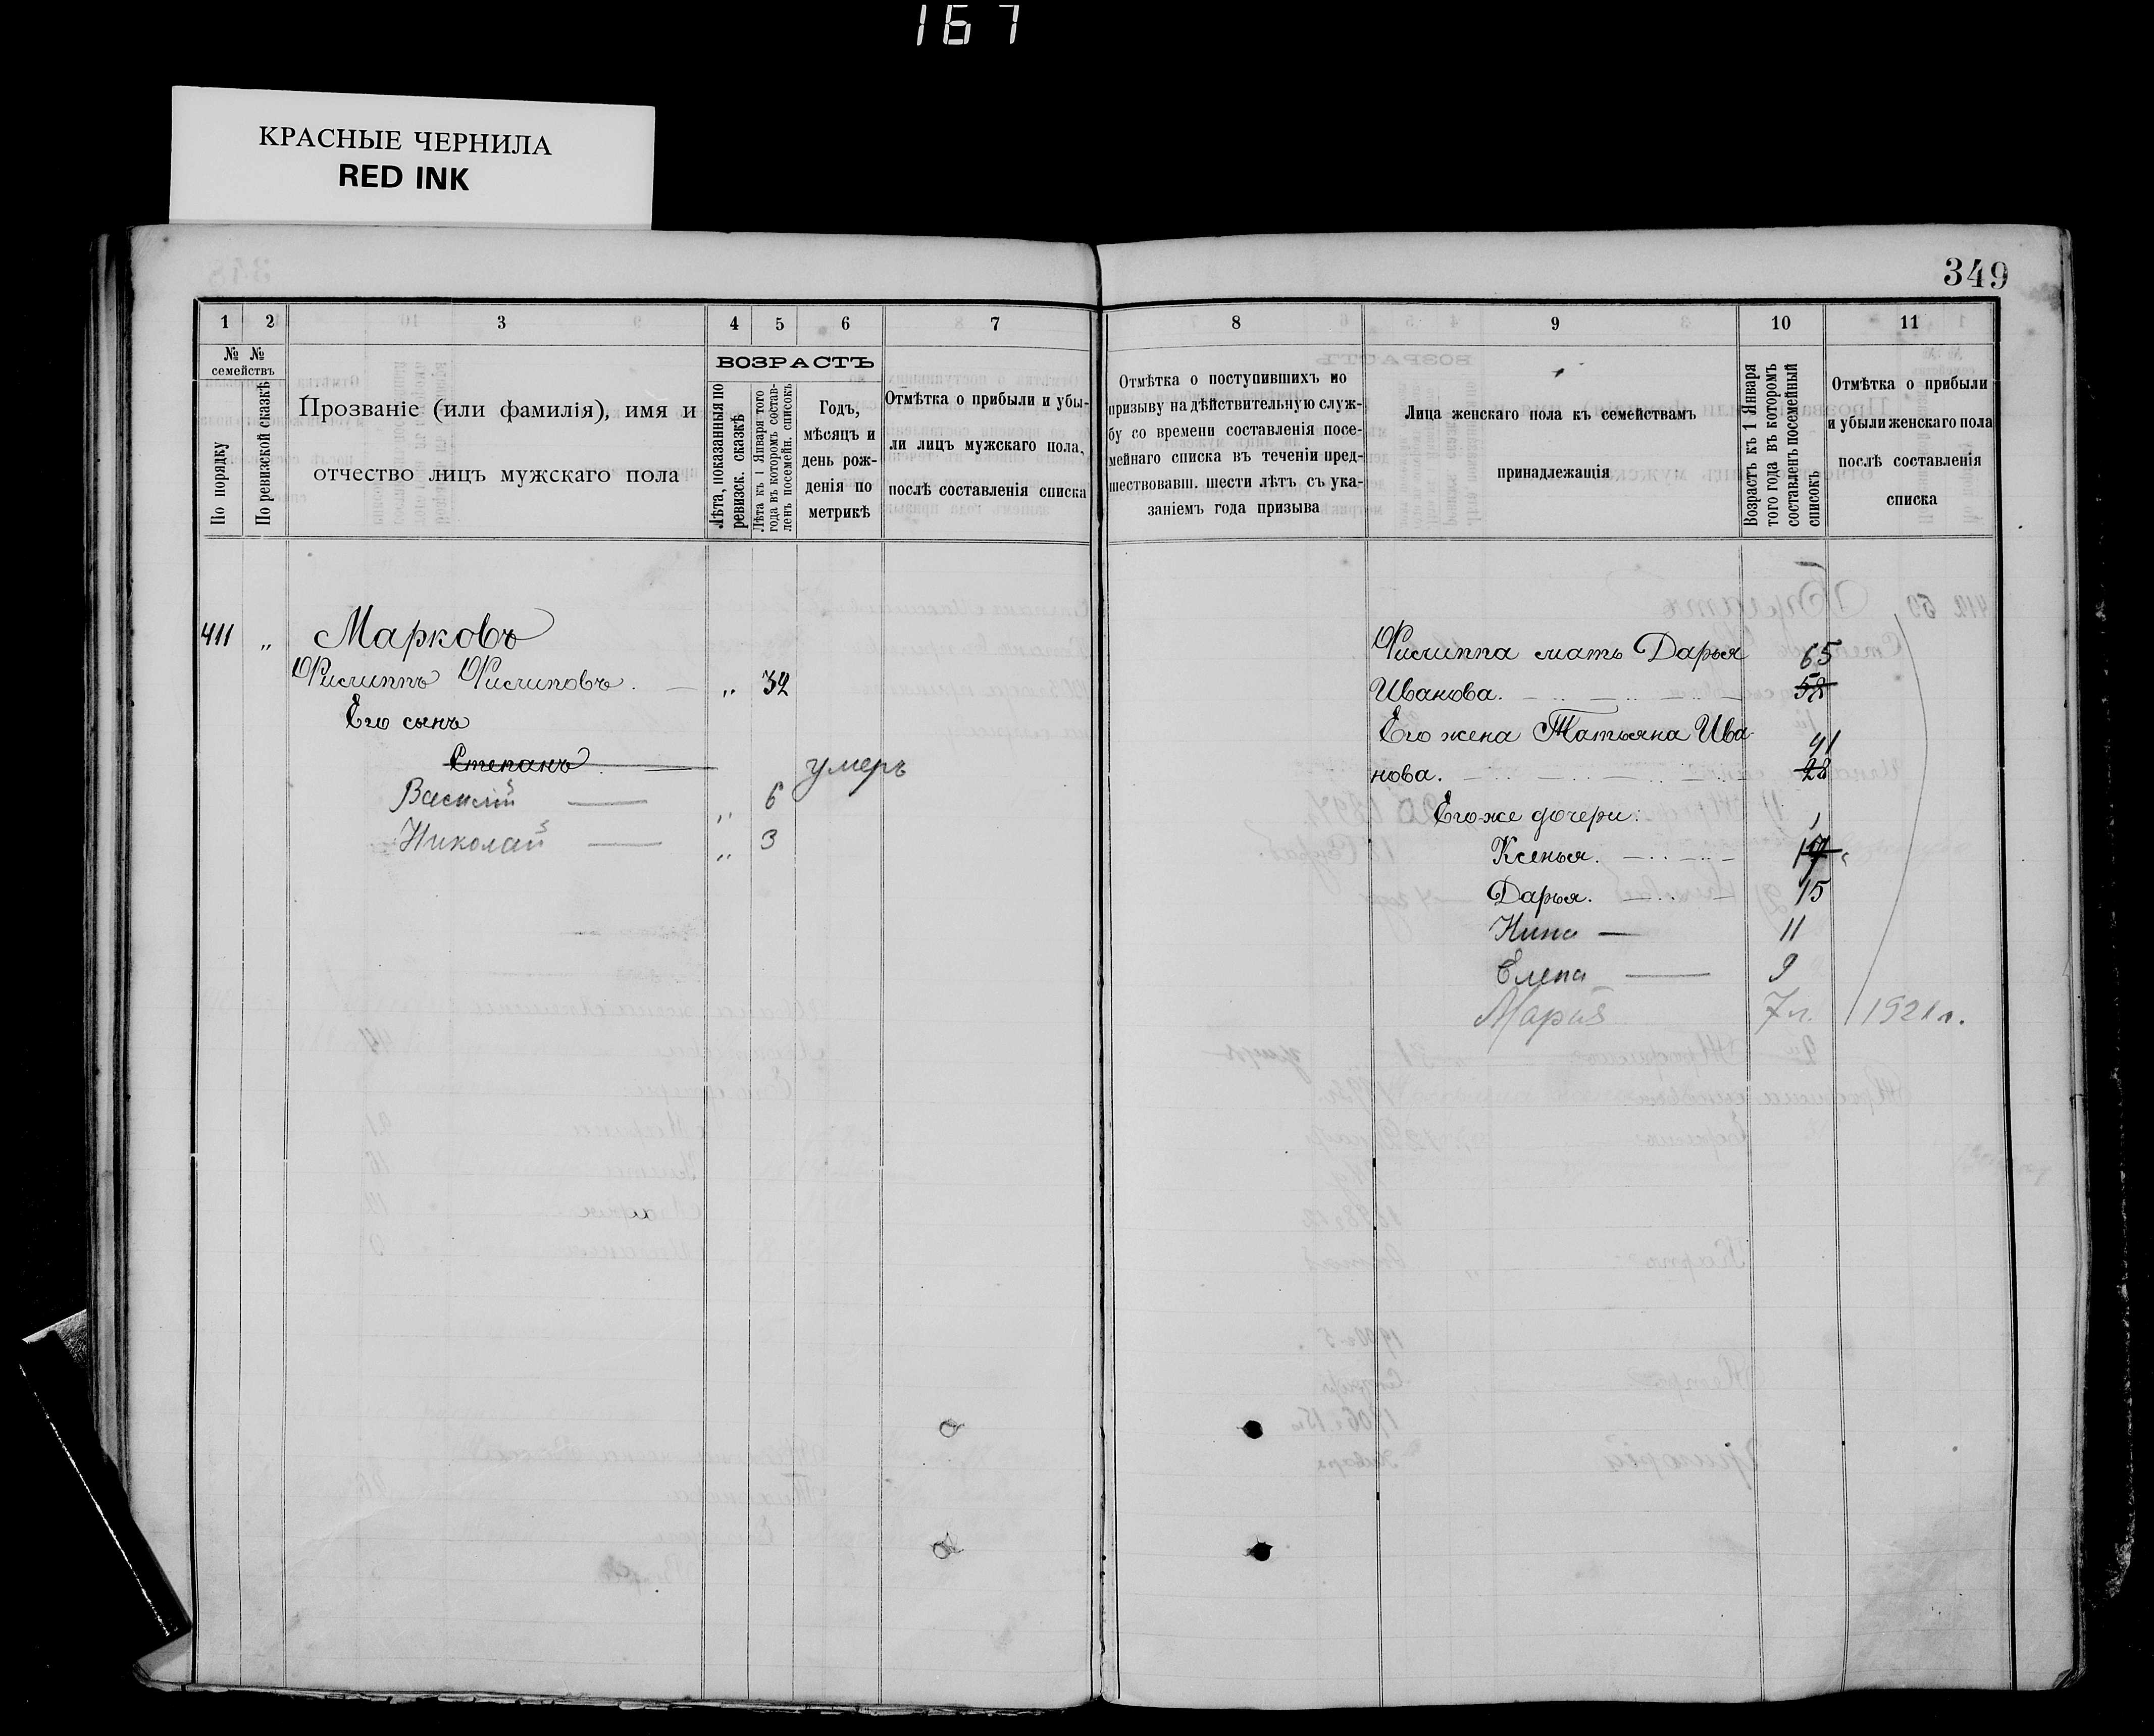 167
КРАСНЫЕ ЧЕРНИЛА
RED INK
349
1 2 3 4 5 6 7
№ № семействъ
По порядку
По ревизской сказкѣ
Прозваніе (или фамилія), имя и
отчество лицъ мужскаго пола
ВОЗРАСТЪ
Лѣта, показанныя по
ревизск. сказкѣ
Лѣта къ 1 Января того
года въ которомъ состав-
ленъ посемейн. списокъ
Годъ,
мѣсяцъ и
день рож-
денія по
метрикѣ
Отмѣтка о прибыли и убы-
ли лицъ мужскаго пола,
послѣ составленія списка
411 „ Марковъ
Филиппъ Филиповъ. — „ 32
Его сынъ
Степанъ. — умеръ
Василій — „ 6
Николай — „ 3
8 9 10 11
Отмѣтка о поступившихъ по
призыву на дѣйствительную служ-
бу со времени составленія посе-
мейнаго списка въ теченіи пред-
шествовавш. шести лѣтъ съ ука-
заніемъ года призыва
Лица женскаго пола къ семействамъ
принадлежащія
Возрастъ къ 1 Января
того года въ которомъ
составленъ посемейный
списокъ
Отмѣтка о прибыли
и убыли женскаго пола
послѣ составленія
списка
Филиппа мать Дарья 65
Иванова. 58
Его жена Татьяна Ива- 41
нова. 28
Его же дочери:
Ксенья. 17
Дарья. 15
Нина — 11
Елена — 9
Марія 7 л. 1921 г.